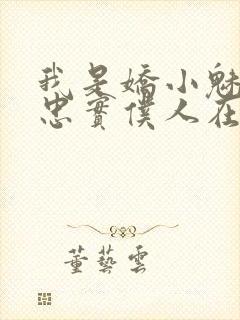 我是嬌小魅
忠實僕人在
董藝雲